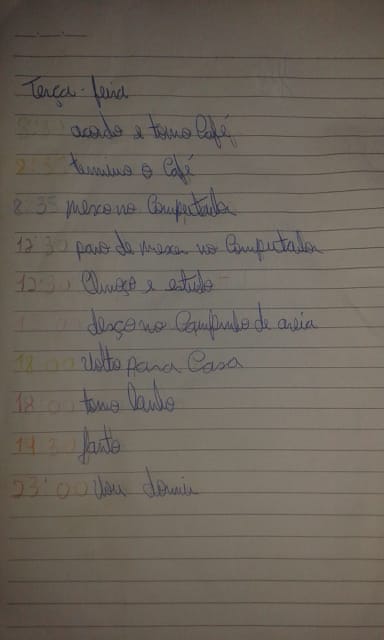 Terça-feira
acordo e tomo Café
termino o Café
8:35 mexo no Computador
12:30 paro de mexer no Computador
12:30 Almoço e estudo
desço no Campinho de areia
18:00 Volto para Casa
18:00 tomo banho
19:30 janto
23:00 Vou dormir